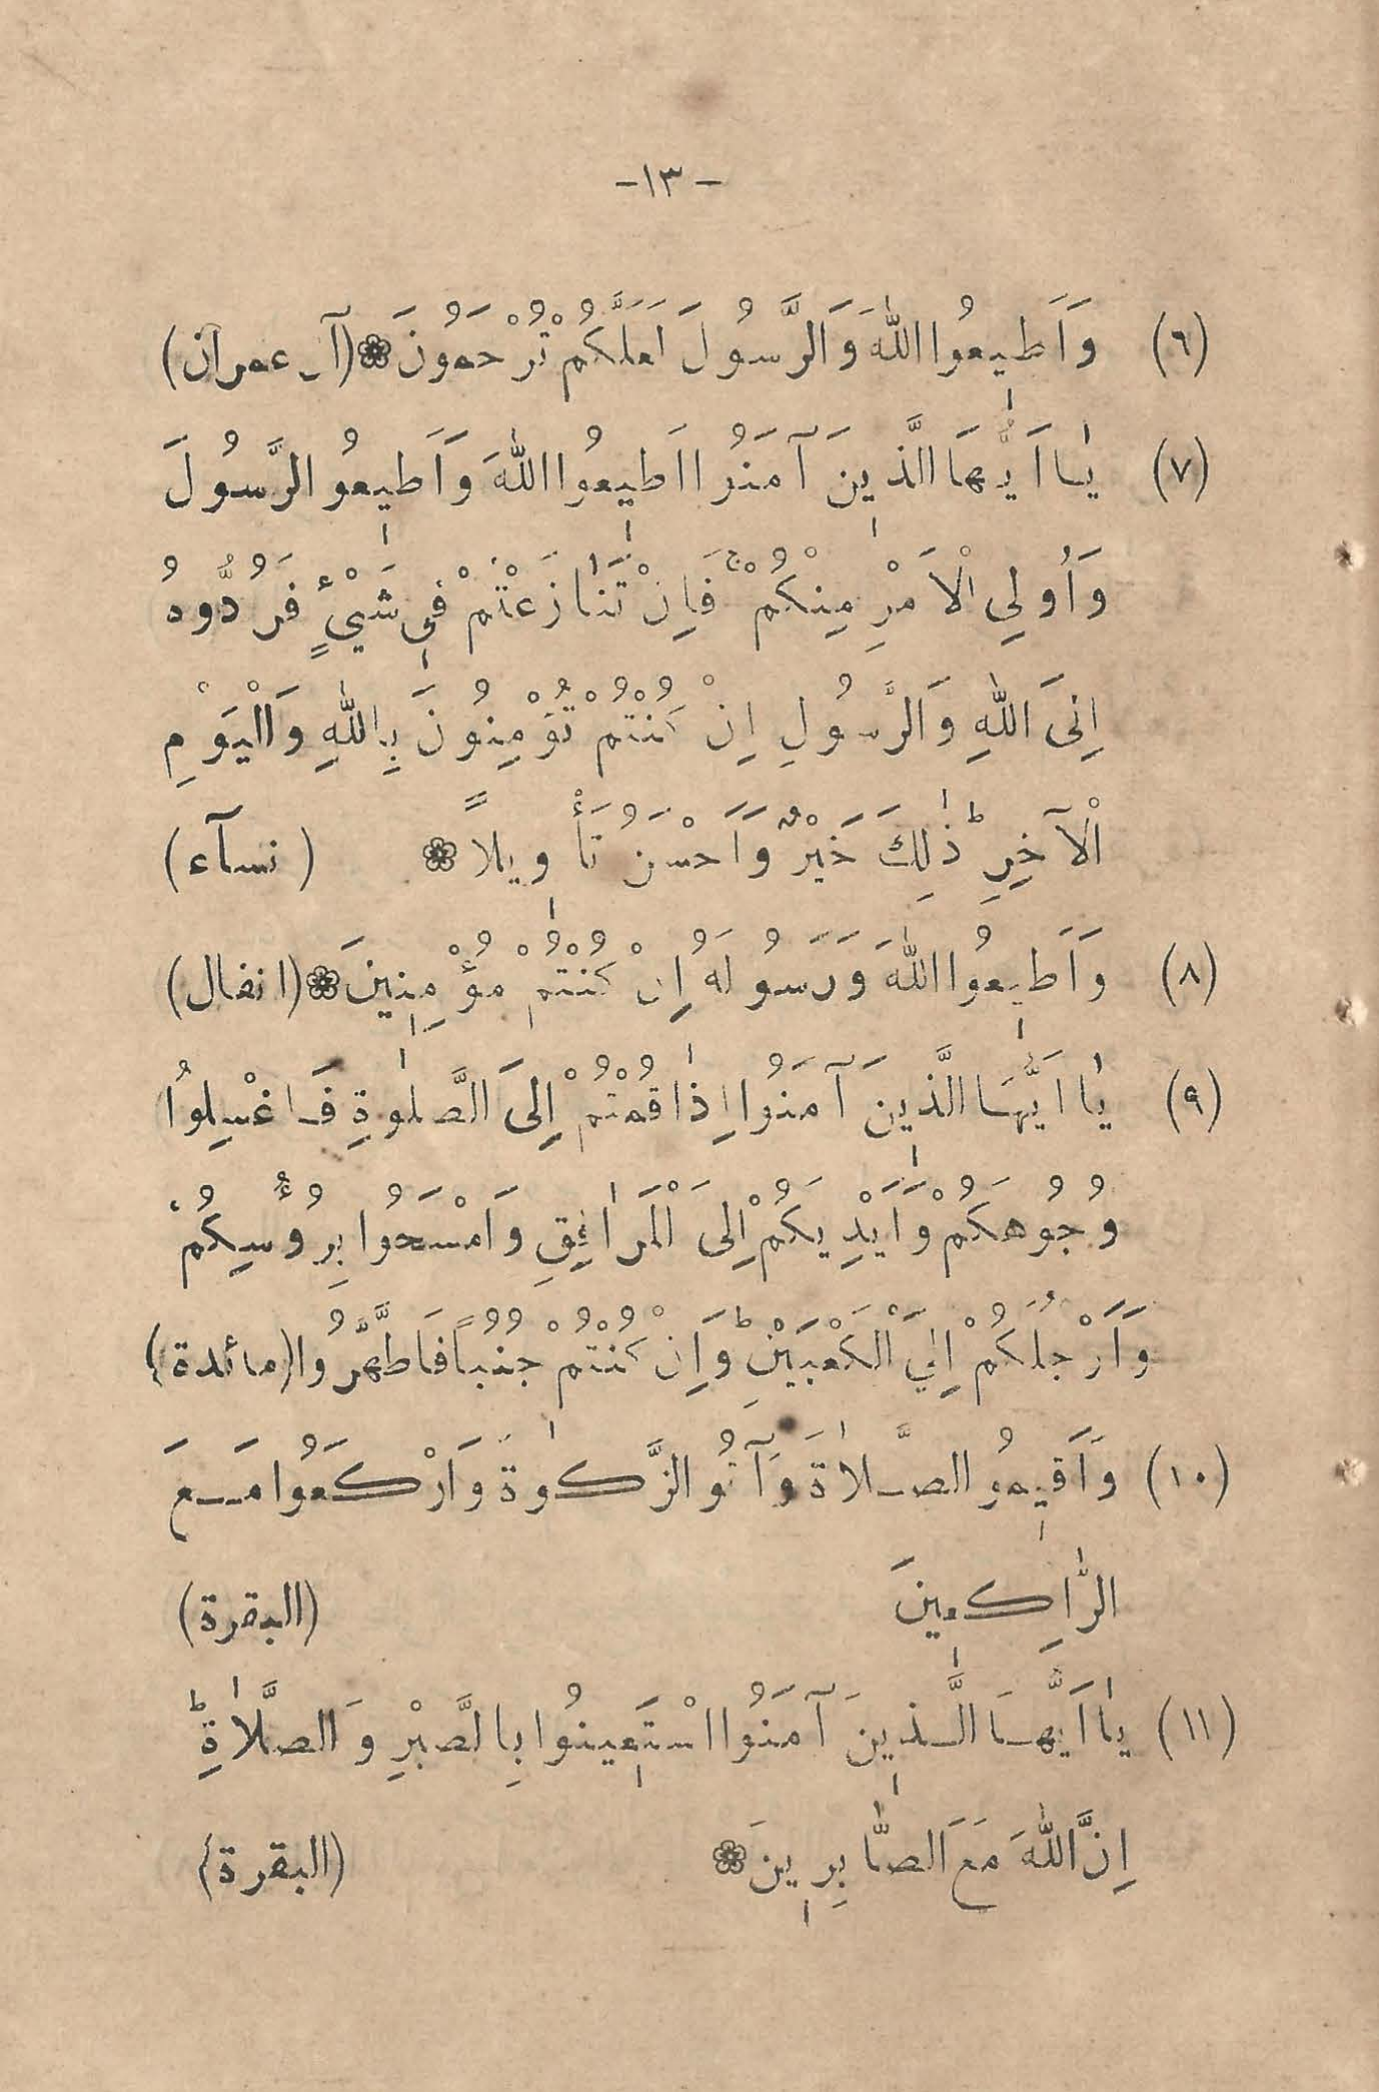 -١٣-
(٦) وَاَطِيعُوا اللّٰهَ وَالرَّسُولَ لَعَلَّكُمْ تُرْحَمُونَ ❁ (آل عمران)
(٧) يٰا اَيُّهَا الَّذِينَ آمَنُوا اَطِيعُوا اللّٰهَ وَاَطِيعُو الرَّسُولَ
وَاُولِي الْاَمْرِ مِنْكُمْ ۚ فَاِنْ تَنٰازَعْتُمْ فِي شَيْءٍ فَرُدُّوهُ
اِلىَ اللّٰهِ وَالرَّسُولِ اِنْ كُنْتُمْ تُؤْمِنُونَ بِاللّٰهِ وَالْيَوْمِ
الْآخِرِ ؕ ذٰلِكَ خَيْرٌ وَاَحْسَنُ تَأْوِيلاً ❁ (نسآء)
(٨) وَاَطِيعُوا اللّٰهَ وَرَسُولَهُ اِنْ كُنْتُمْ مُؤْمِنِينَ ❁ (انفال)
(٩) يٰا اَيُّهَا الَّذِينَ آمَنُوا اِذٰا قُمْتُمْ اِلىَ الصَّلٰوةِ فَاغْسِلُوُا
وُجُوهَكُمْ وَاَيْدِيَكُمْ اِلىَ الْمَرٰافِقِ وَامْسَحُوا بِرُؤُسِكُمْ
وَاَرْجُلَكُمْ اِلَي الْكَعْبَيْنِ ؕ وَاِنْ كُنْتُمْ جُنُباً فَاطَّهَّرُوا (مائدة)
(١٠) وَاَقِيمُو الصَّلاٰةَ وَآتُو الزَّكٰوةَ وَارْكَعُوا مَعَ
الرّٰاكِعِينَ (البقرة)
(١١) يٰا اَيُّهَا الَّذِينَ آمَنُوا اسْتَعِينُوا بِالصَّبْرِ وَالصَّلاٰةِ ؕ
اِنَّ اللّٰهَ مَعَ الصّٰابِرِينَ ❁ (البقرة)